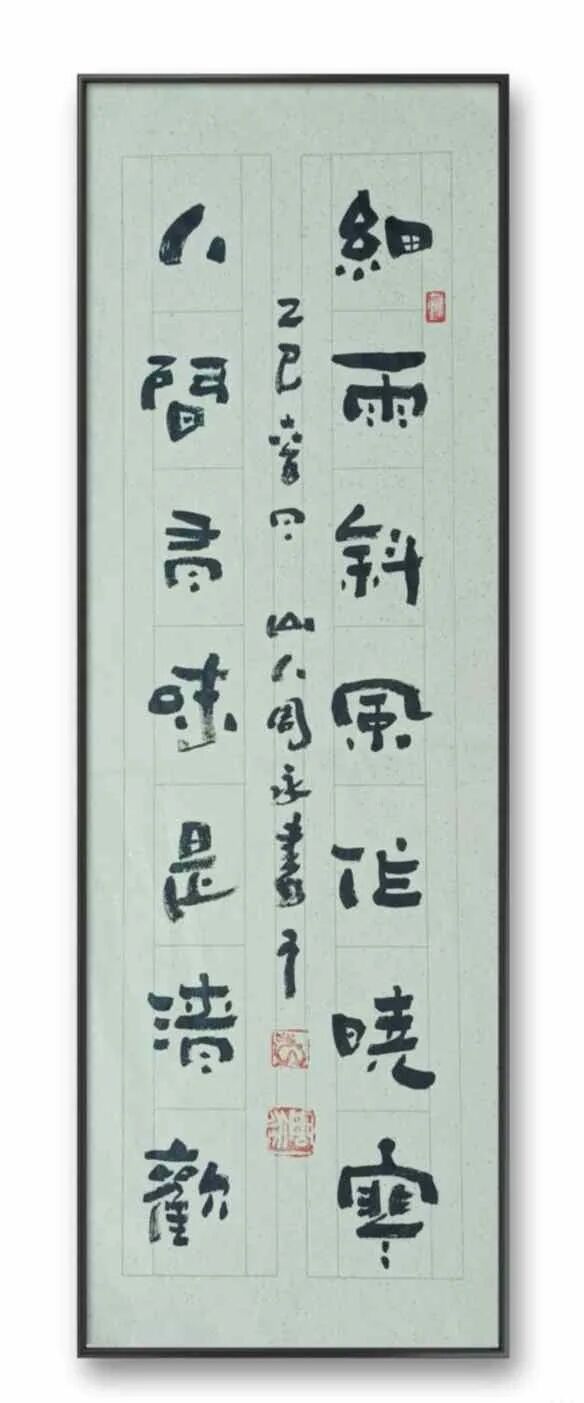 細雨斜風作曉寒
人間有味是清歡
乙巳 山人周永書于